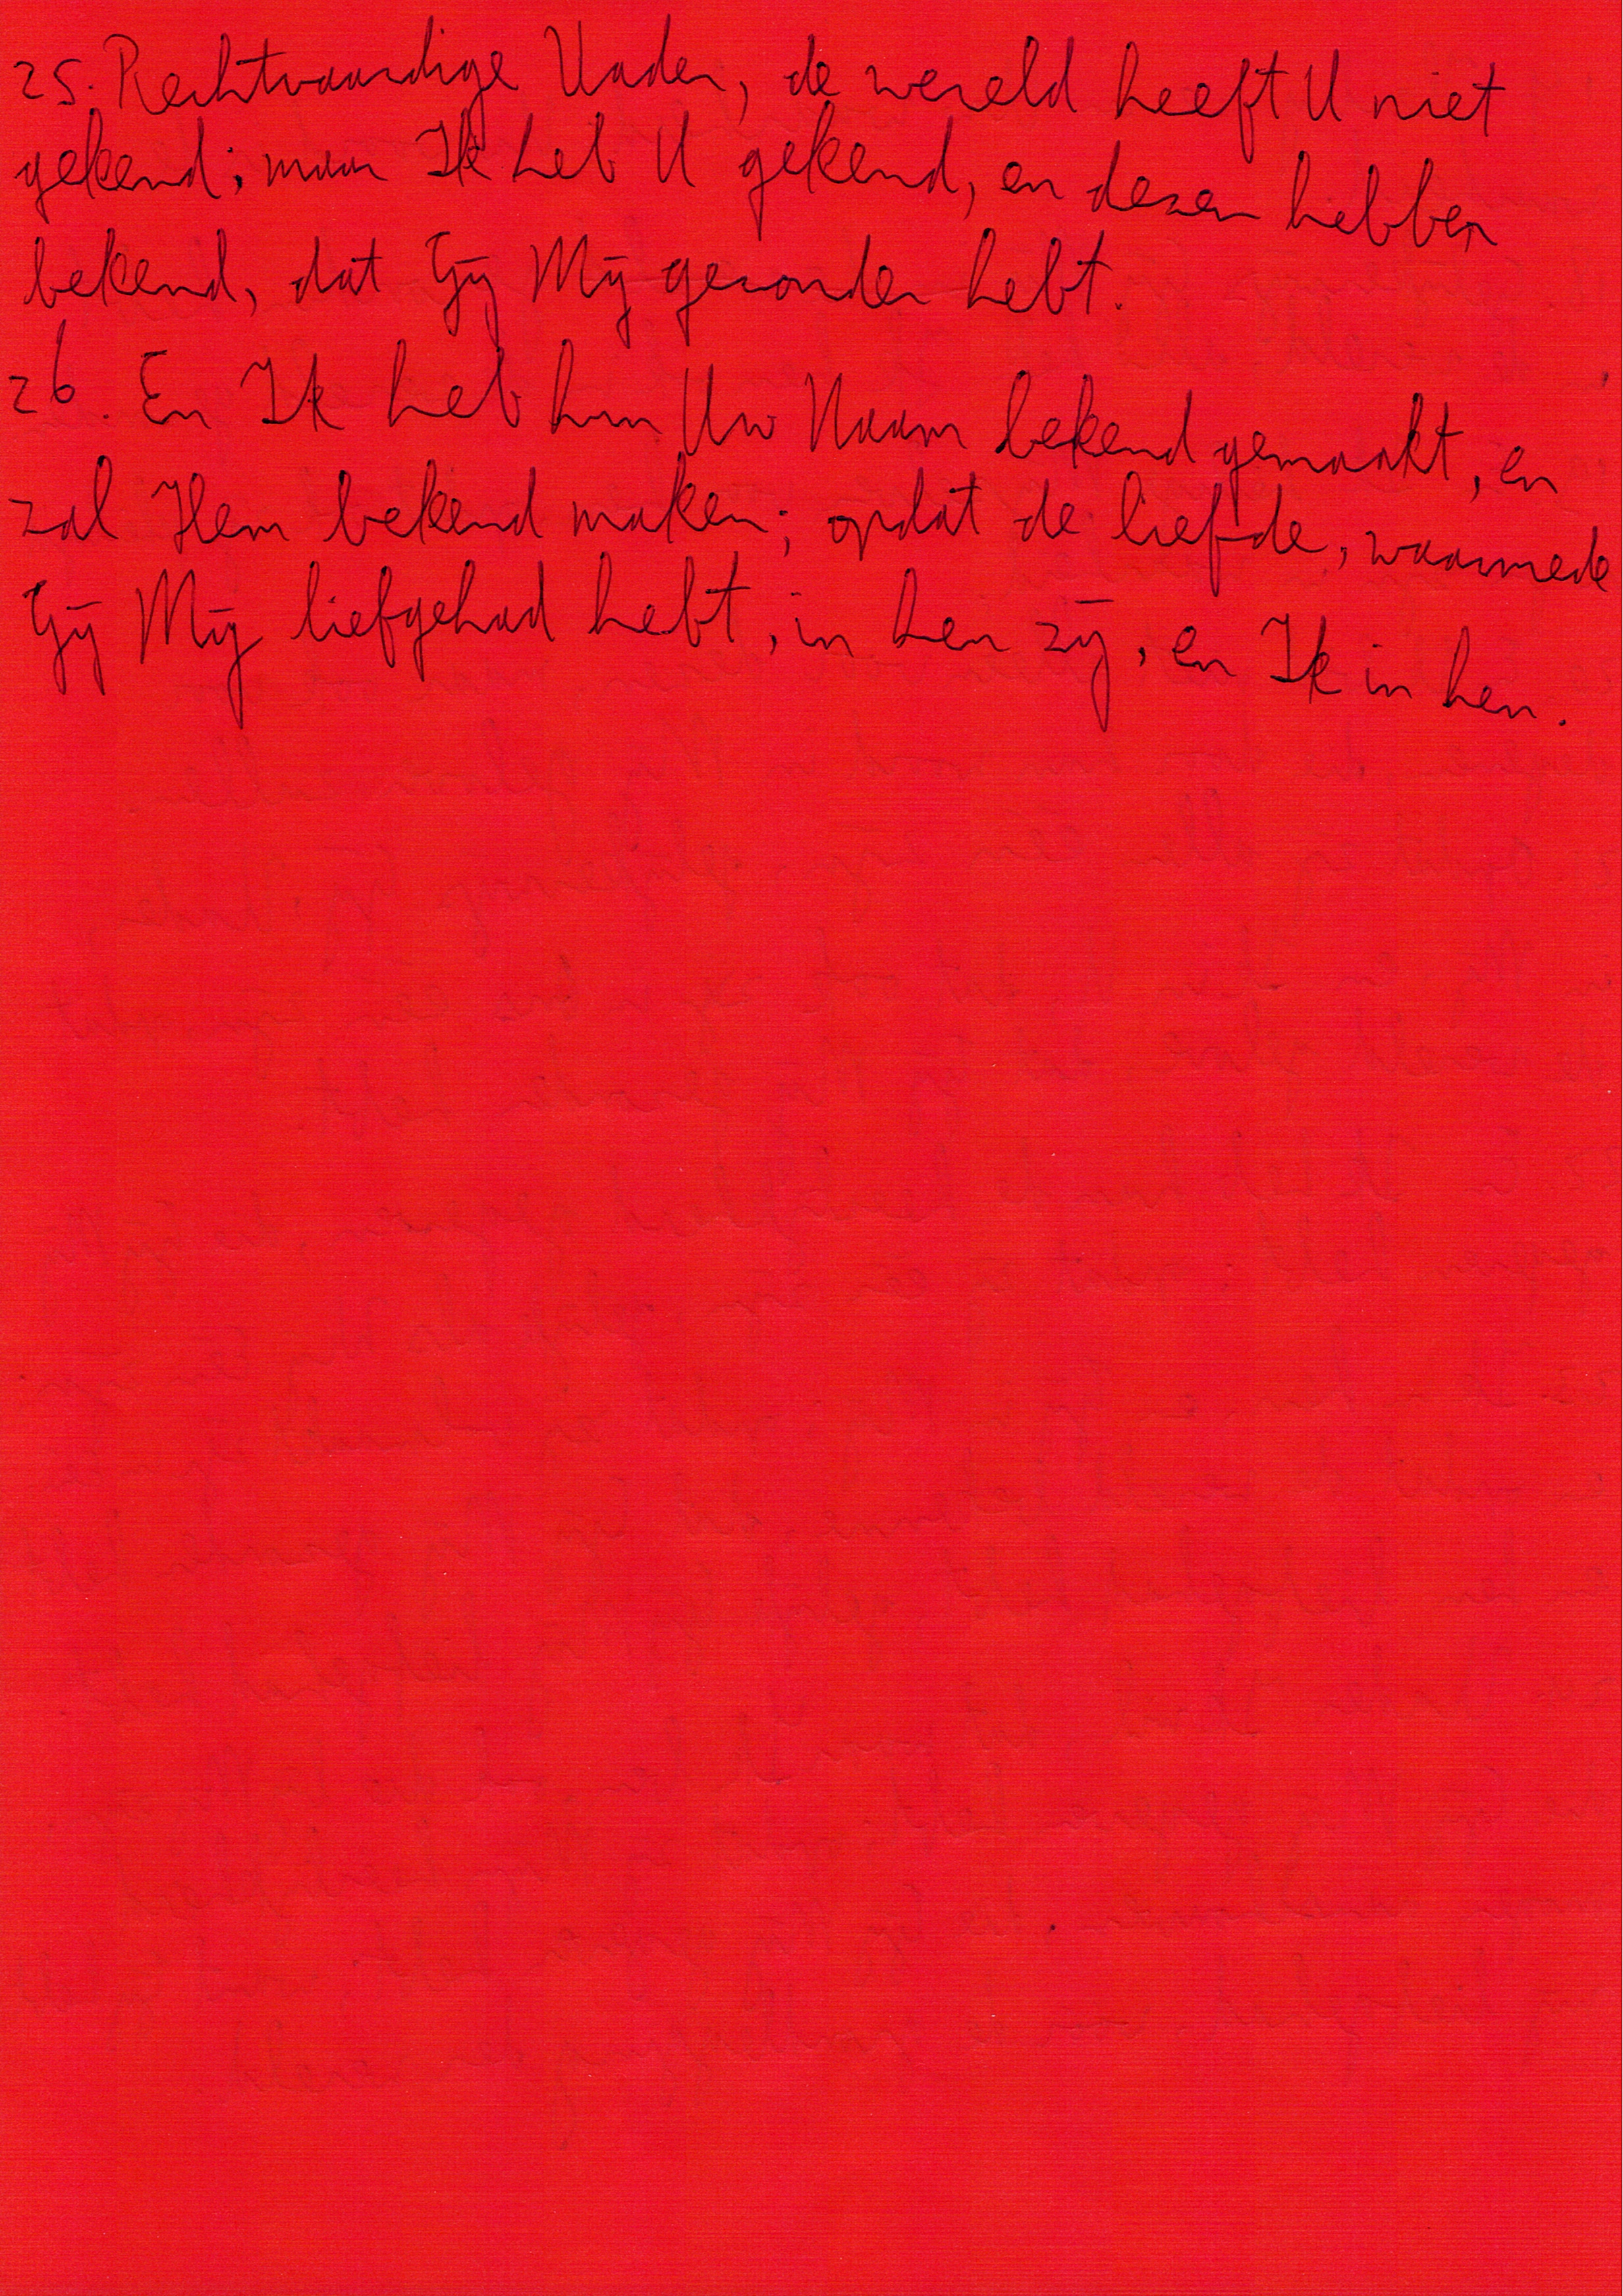 25. Rechtvaardige Vader, de wereld heeft U niet
gekend; maar Ik heb U gekend, en dezen hebben
bekend, dat Gij Mij gezonden hebt.
26. En Ik heb hun Uw Naam bekend gemaakt, en
zal Hem bekend maken; opdat de liefde, waarmede
Gij Mij liefgehad hebt, in hen zij, en Ik in hen.